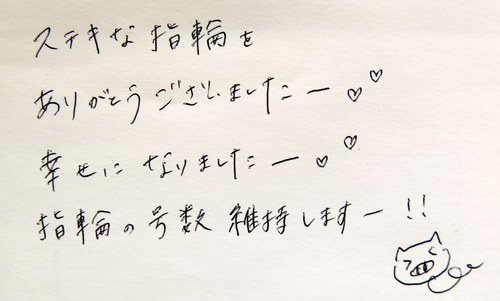 ステキな指輪を
ありがとうございましたー♡♡
幸せになりましたー♡♡
指輪の号数維持しますー!!